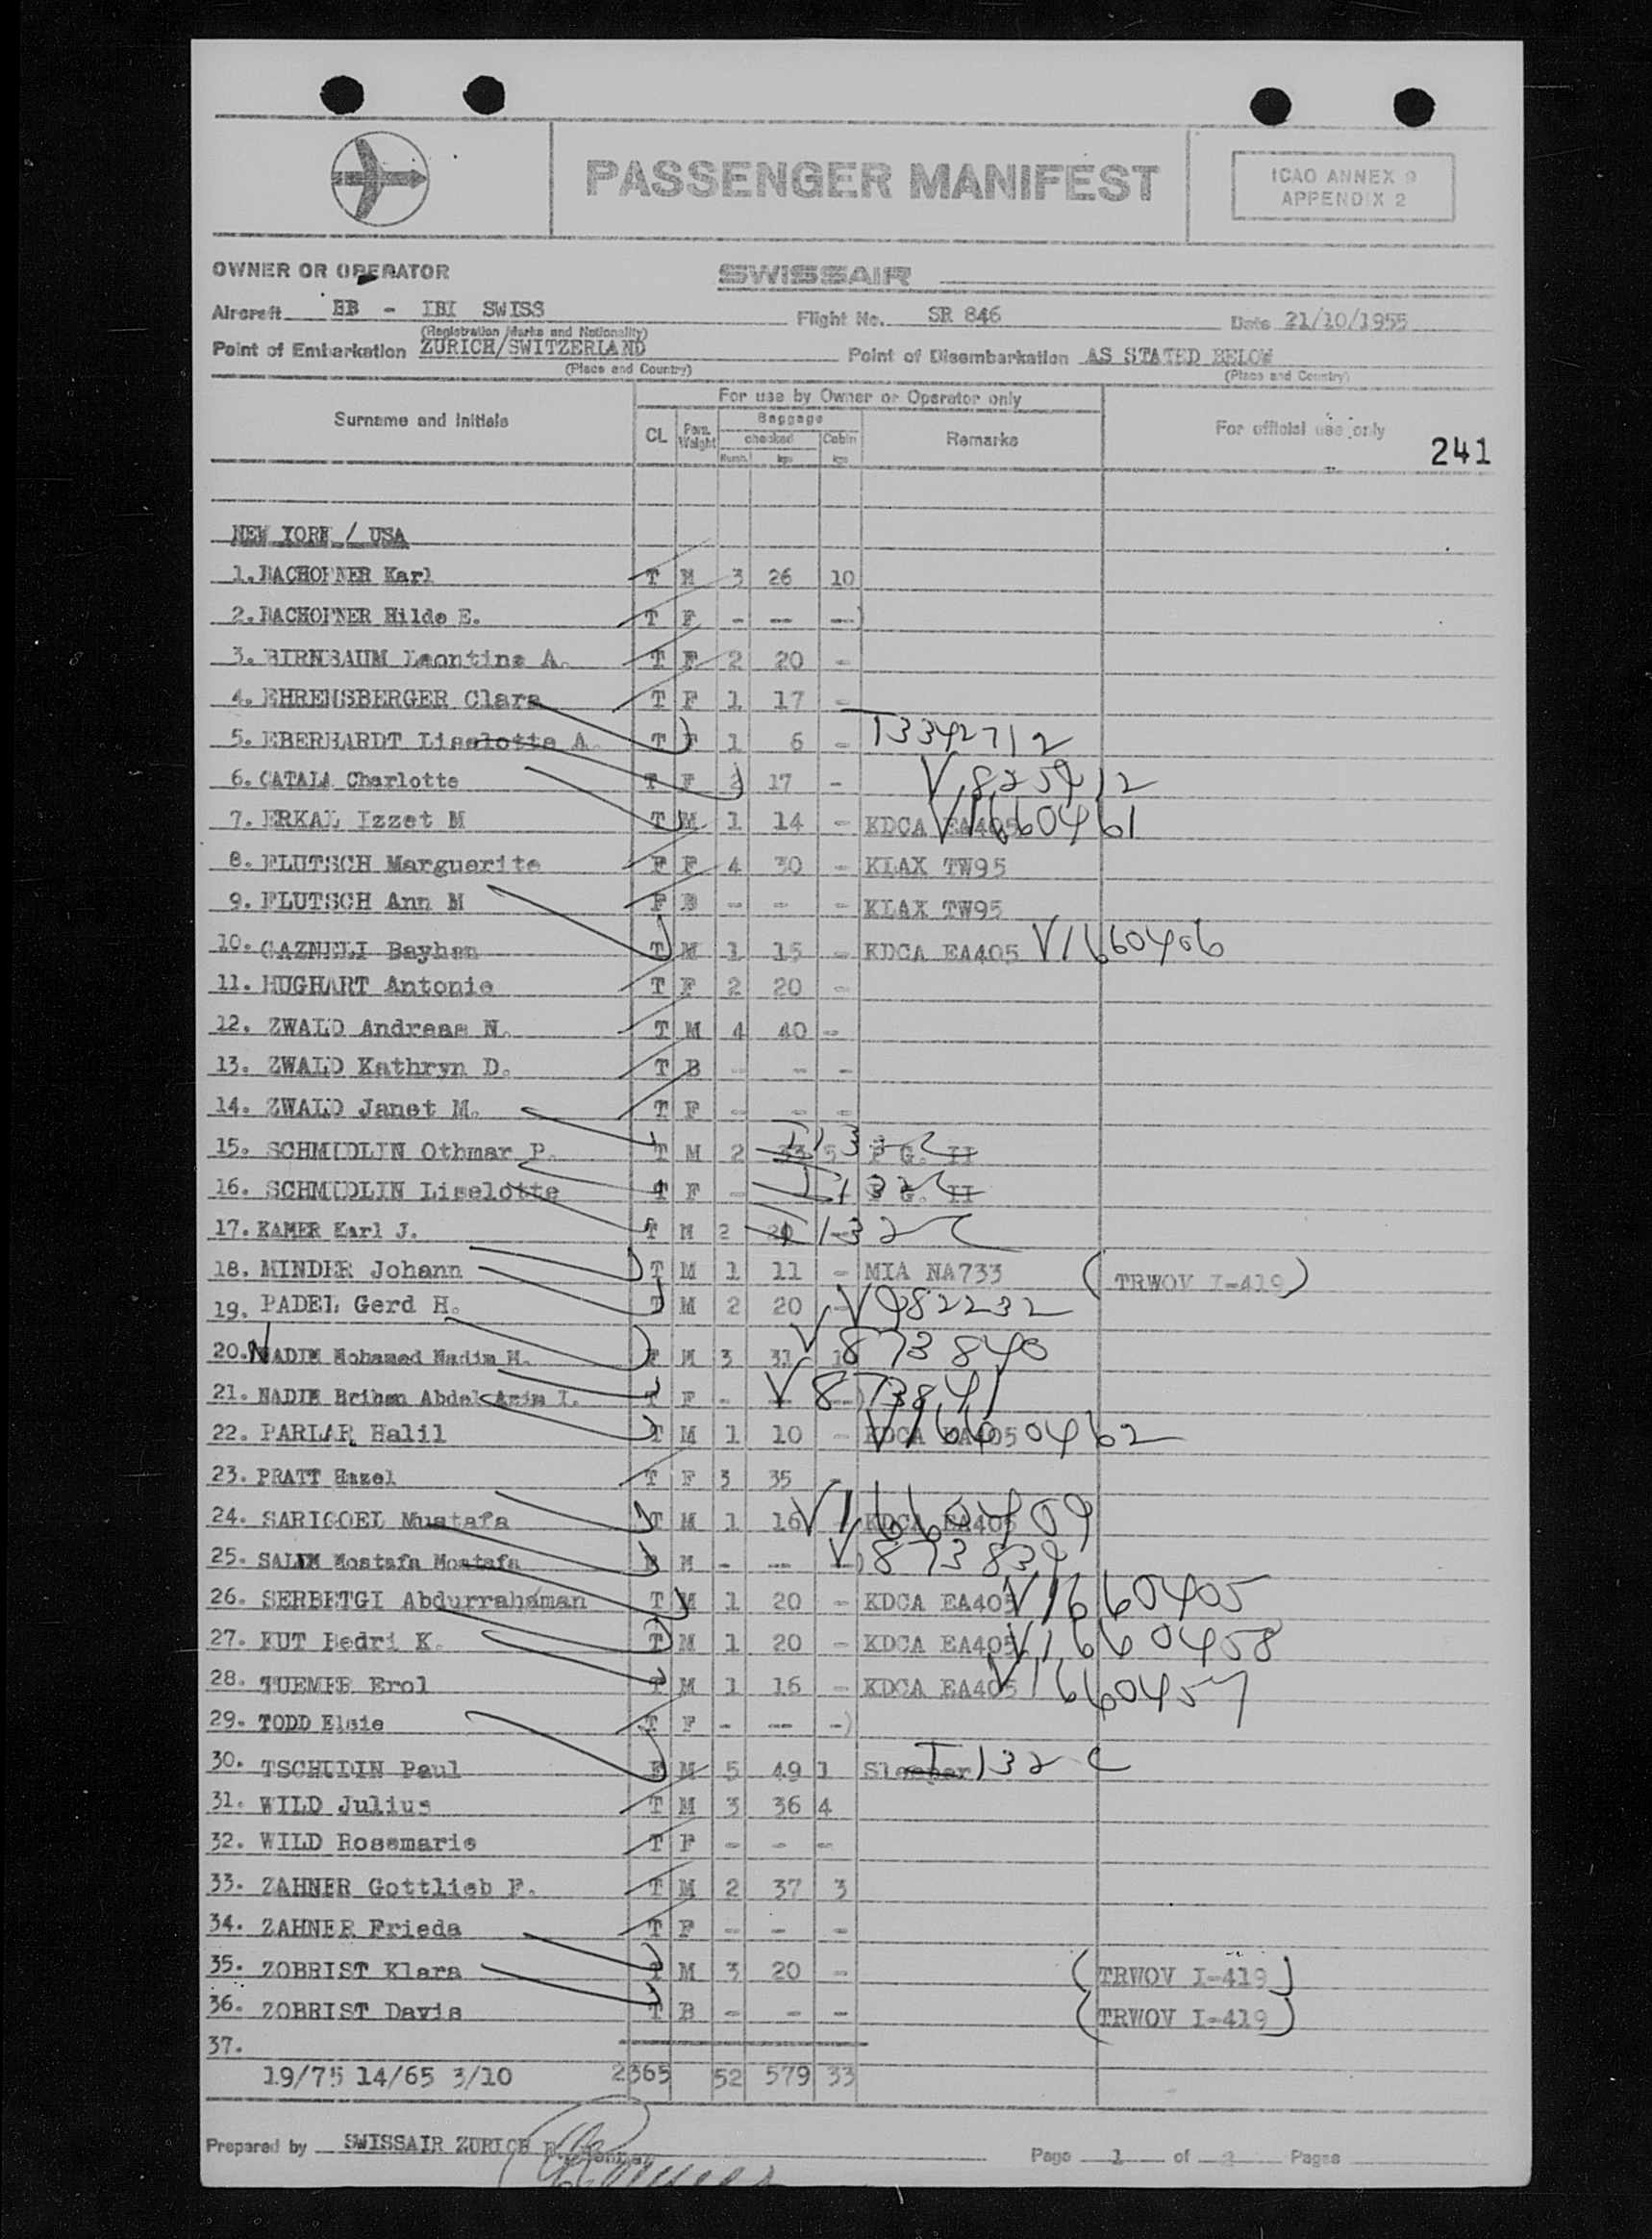 PASSENGER MANIFEST
ICAO ANNEX 9
APPENDIX 2
OWNER OR OPERATOR SWISSAIR
Aircraft HB - IBI SWISS Flight No. SR 846 Date 21/10/1955
(Registration Marks and Nationality)
Point of Embarkation ZURICH/SWITZERLAND Point of Disembarkation AS STATED BELOW
(Place and Country) (Place and Country)
For use by Owner or Operator only
Surname and Initials CL Pers. Weight Baggage checked Cabin Remarks For official use only
Numb. kgs kgs
241
NEW YORK / USA
1. BACHOFNER Karl T M 3 26 10
2. BACHOFNER Hilde E. T F - -- --)
3. BIRNBAUM Leontine A. T F 2 20 -
4. EHRENSBERGER Clara T F 1 17 -
5. EBERHARDT Liselotte A. T F 1 6 - T3342712
6. CATALA Charlotte T F 2 17 - V825912
7. ERKAL Izzet M T M 1 14 - KDCA EA405 V1660461
8. FLUTSCH Marguerite F F 4 30 - KLAX TW95
9. FLUTSCH Ann M F B - - - KLAX TW95
10. GAZNELI Bayhan T M 1 15 - KDCA EA405 V1660406
11. HUGHART Antonie T F 2 20 -
12. ZWALD Andreas N. T M 4 40 -
13. ZWALD Kathryn D. T B - - -
14. ZWALD Janet M. T F - - -
15. SCHMIDLIN Othmar P. T M 2 33 5 P G. II
16. SCHMIDLIN Liselotte T F - G. II
17. KAMER Karl J. T M 2 20 T132C
18. MINDER Johann T M 1 11 - MIA NA733 (TRWOV I-419)
19. PADEL Gerd H. T M 2 20 - V982232
20. NADIM Mohamed Nadim M. F M 3 31 1 V873840
21. NADIM Erihan Abdel Azim I. T F - -- --) V873841
22. PARLAR Halil T M 1 10 - KDCA EA405 V1660462
23. PRATT Hazel T F 3 35 -
24. SARIGOEL Mustafa T M 1 16 - KDCA EA405 V1660409
25. SALIM Mostafa Mostafa M - -- --) V873839
26. SERBETGI Abdurrahaman T M 1 20 - KDCA EA405 V1660405
27. KUT Bedri K. T M 1 20 - KDCA EA405 V1660458
28. TUEMER Erol T M 1 16 - KDCA EA405 V1660457
29. TODD Elsie T F - -- -)
30. TSCHUDIN Paul F M 5 49 1 Sleeper T132C
31. WILD Julius T M 3 36 4
32. WILD Rosemarie T F - - -
33. ZAHNER Gottlieb F. T M 2 37 3
34. ZAHNER Frieda T F - - -
35. ZOBRIST Klara T M 3 20 - (TRWOV I-419)
36. ZOBRIST Davis T B - - - (TRWOV I-419)
37.
19/75 14/65 3/10 2365 52 579 33
Prepared by SWISSAIR ZURICH Page 1 of 2 Pages